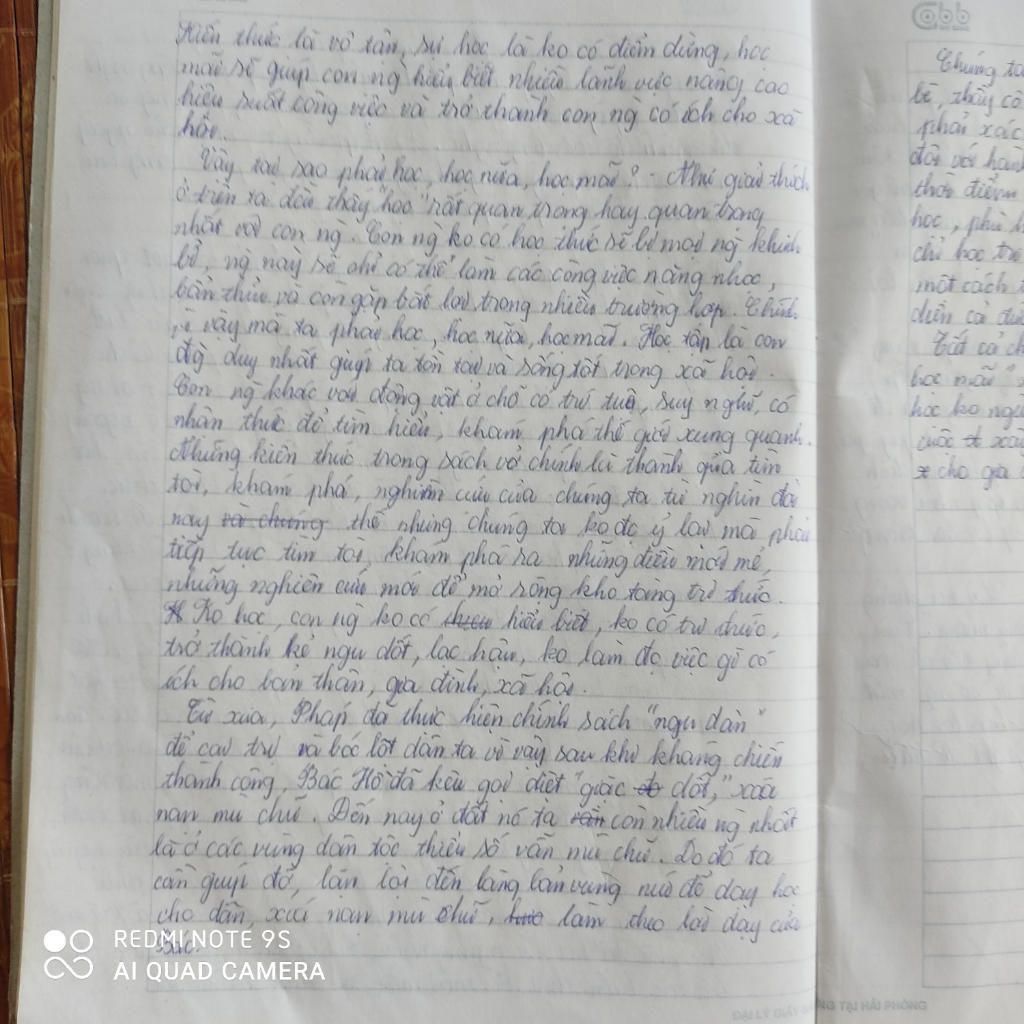 Kiến thức là vô tận, sự học là ko có điểm dừng, học
mãi sẽ giúp con ng hiểu biết nhiều lãnh vực nâng cao
hiệu suất công việc và trở thành con ng có ích cho xã
hội.
Vậy tại sao phải học, học nữa, học mãi? - Như giải thích
ở trên ta đều thấy "học" rất quan trọng hay quan trọng
nhất với con ng. Con ng ko có học thức sẽ bị mọi ng khinh
bỉ, ng này sẽ chỉ có thể làm các công việc nặng nhọc,
bần thỉu và còn gặp bất lợi trong nhiều trường hợp. Chính
vì vậy mà ta phải học, học nữa, học mãi. Học tập là con
đg duy nhất giúp ta tồn tại và sống tốt trong xã hội.
Con ng khác với động vật ở chỗ có trí tuệ, suy nghĩ, có
nhận thức để tìm hiểu, khám phá thế giới xung quanh.
Những kiến thức trong sách vở chính là thành quả tìm
tòi, khám phá, nghiên cứu của chúng ta từ nghìn đời
nay và chúng thế nhưng chúng ta ko đc ỷ lại mà phải
tiếp tục tìm tòi, khám phá ra những điều mới mẻ,
những nghiên cứu mới để mở rộng kho tàng tri thức.
Ko học, con ng ko có hiểu biết, ko có tri thức,
trở thành kẻ ngu dốt, lạc hậu, ko làm đc việc gì có
ích cho bản thân, gia đình, xã hội.
Từ xưa, Pháp đã thực hiện chính sách "ngu dân"
để cai trị và bóc lột dân ta vì vậy sau khi kháng chiến
thành công, Bác Hồ đã kêu gọi diệt "giặc dốt," xoá
nạn mù chữ. Đến nay ở đất nc ta còn nhiều ng nhất
là ở các vùng dân tộc thiểu số vẫn mù chữ. Do đó ta
cần giúp đỡ, lặn lội đến làng bản vùng núi để dạy học
cho dân, xoá nạn mù chữ, làm theo lời dạy của
Bác.
Cobb
Chúng ta
bè, thầy cô
phải xác
đối với hành
thời điểm
học, phải
chỉ học
một cách
diễn cả
Tất cả
học mãi"
học ko
cuộc xây
cho gia
REDMI NOTE 9S
AI QUAD CAMERA
TẠI HẢI PHÒNG